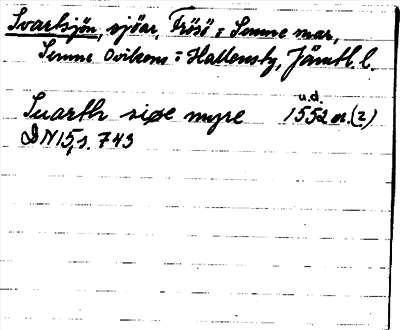 Svartsjön, sjöar, Frösö = Sunne mar,
Sunne Ovikens = Hallensby, Jämtl. l.
u.d.
Suarth siøe myre 1552 or. (2)
DN 15, s. 743